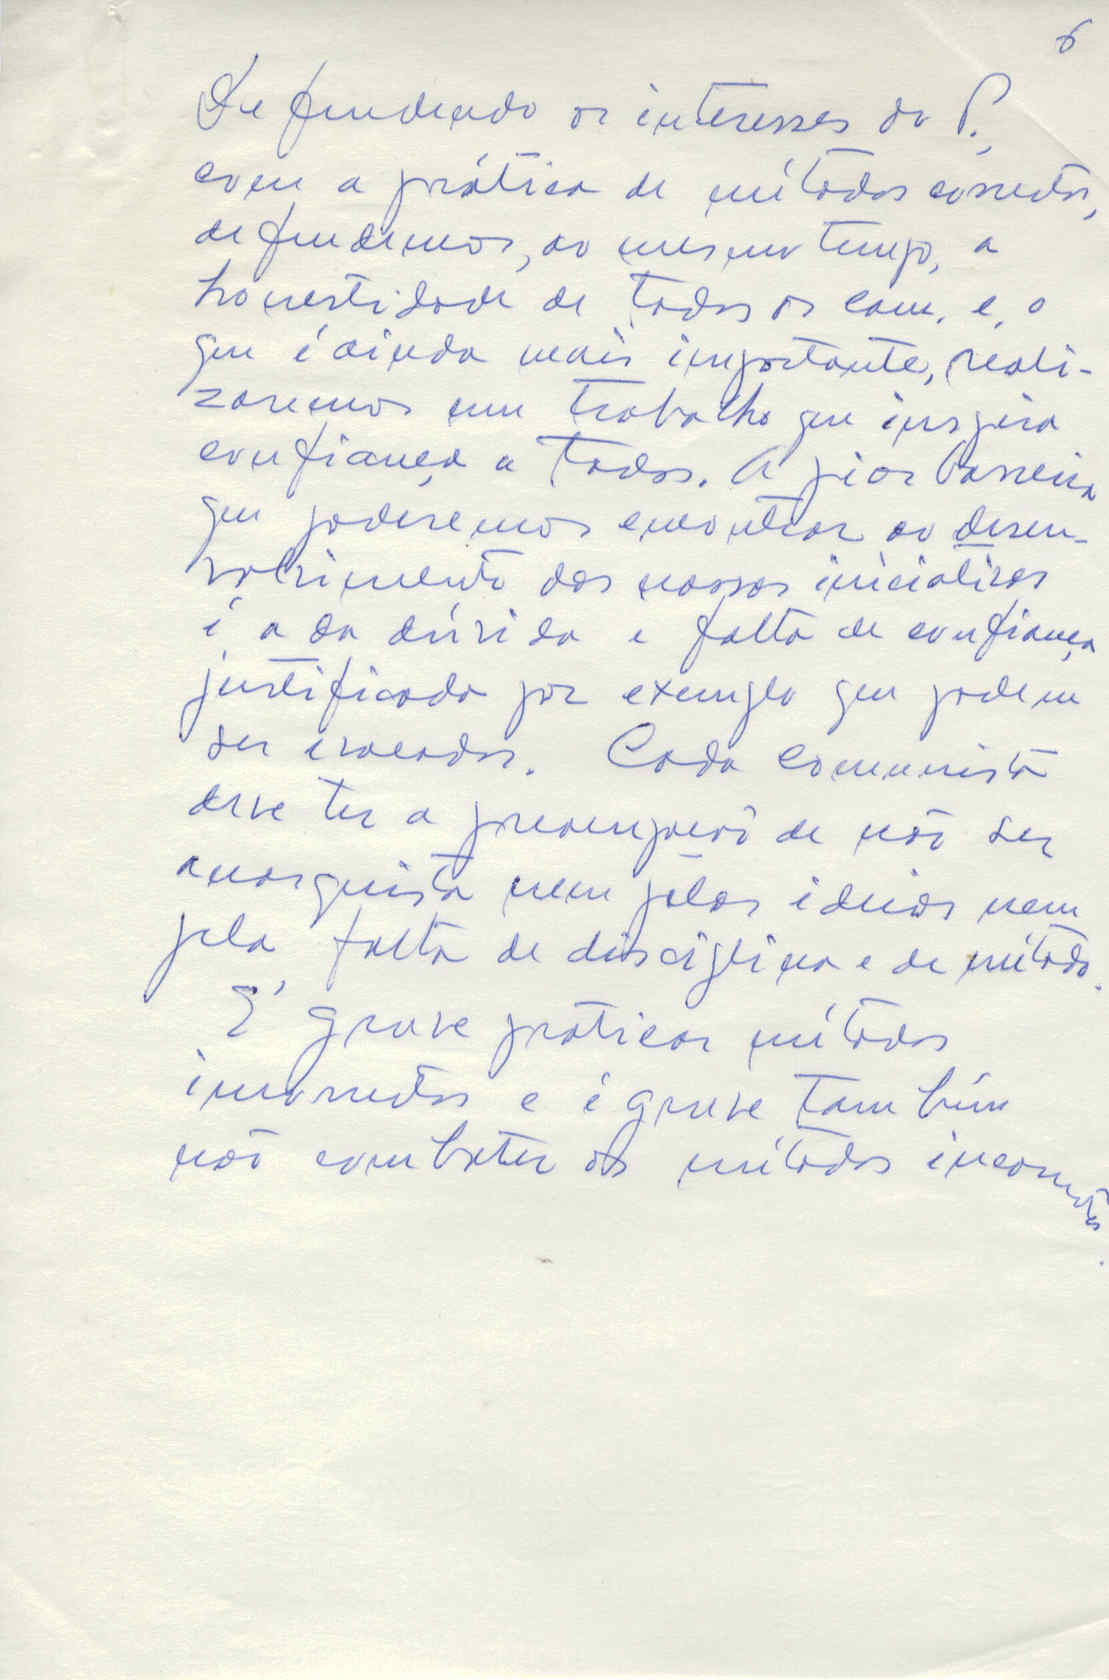 6
Defendendo os interesses do P.,
com a prática de métodos corretos,
defendemos, ao mesmo tempo, a
honestidade de todos os cam. e, o
que é ainda mais importante, reali-
zaremos um trabalho que inspira
confiança a todos. A pior barreira
que poderemos encontrar ao desen-
volvimento das nossas iniciativas
é a da dúvida e falta de confiança
justificada por exemplo que podem
ser evocados. Cada comunista
deve ter a preocupação de não ser
anarquista nem pelas ideias nem
pela falta de disciplina e de método.
É grave praticar métodos
incorretos e é grave também
não combater os métodos incorretos.